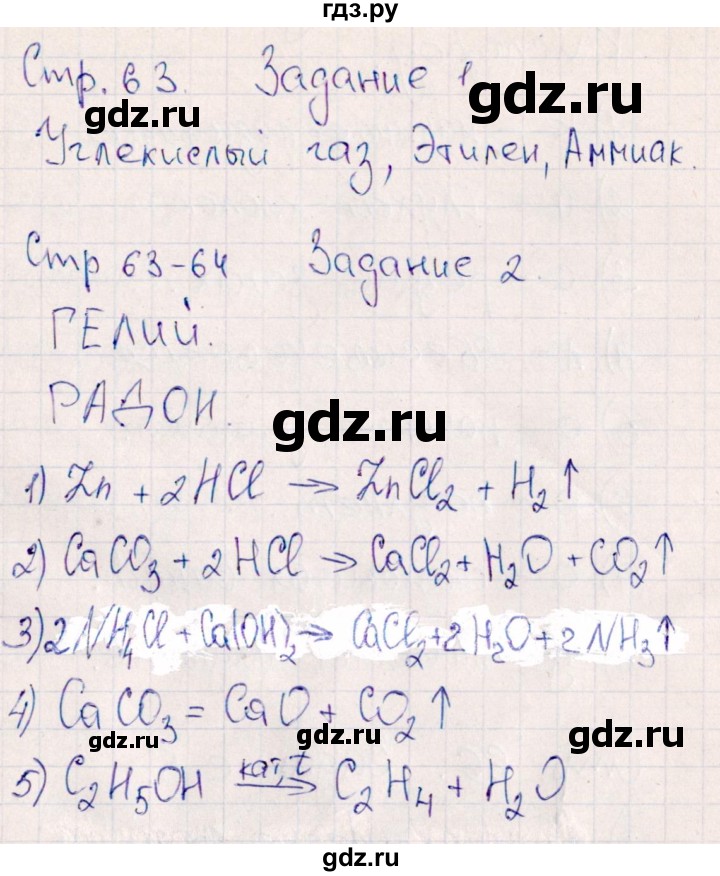 гдз.ру
Стр. 63. Задание 1
gdz.ru
gdz.ru
Углекислый газ, Этилен, Аммиак.
Стр 63-64 Задание 2.
ГЕЛИЙ.
РАДОН.
gdz.ru
1) Zn + 2HCl → ZnCl₂ + H₂↑
2) CaCO₃ + 2HCl → CaCl₂ + H₂O + CO₂↑
3) 2NH₄Cl + Ca(OH)₂ → CaCl₂ + 2H₂O + 2NH₃↑
4) CaCO₃ = CaO + CO₂↑
gdz.ru
gdz.ru
5) C₂H₅OH кат, t → C₂H₄ + H₂O
gdz.ru